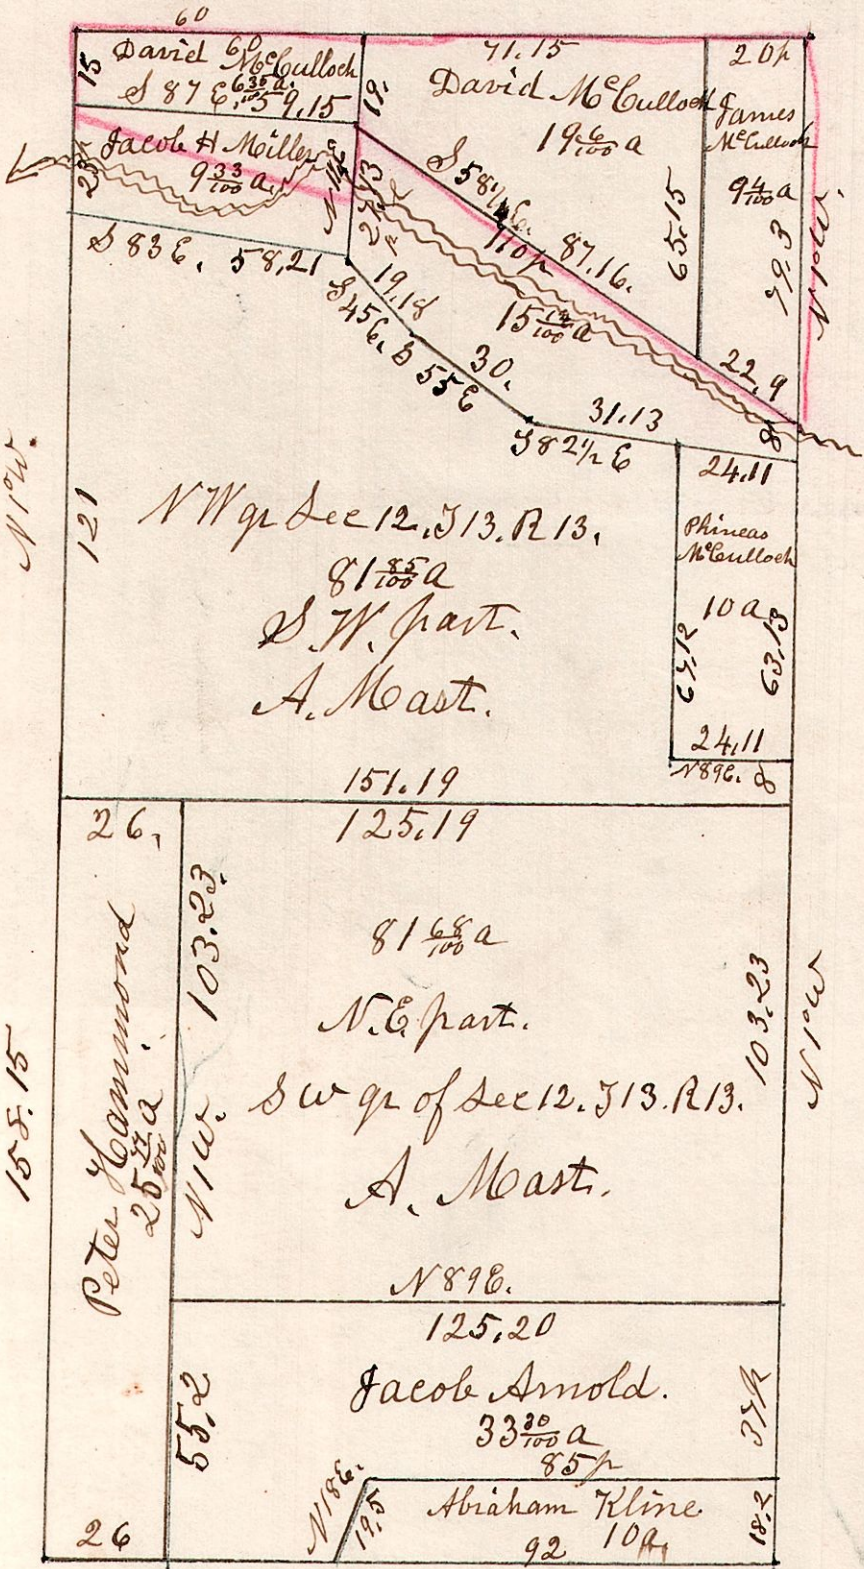 60
15
David McCulloch
60
6 35/100 a.
S 87 E. 59.15
19.
71.15
David McCulloch
19 6/100 a
20p
James
McCulloch
9 4/100 a
79.3
N 1° W.
65.15
Jacob H Miller
9 33/100 a.
S 58 1/2 E.
110p
87.16.
15 14/100 a
22.9
8
S 83 E. 58.21
19.18
S 45 E.
30.
S 55 E
31.13
S 82 1/2 E
24.11
Phineas
McCulloch
10 a
67.12
63.13
24.11
N 89 E. 8
N 1° W.
121
N W qr Sec 12. T 13. R 13.
81 85/100 a
S. W. part.
A. Mast.
151.19
26.
125.19
103.23.
N 1 W.
81 68/100 a
N. E. part.
S W qr of Sec 12. T 13. R 13.
A. Mast.
103.23
N 1° W
Peter Hammond
25 77/100 a
158.15
N 89 E.
125.20
Jacob Arnold.
33 30/100 a
85p
55.2
37p
N 18 E.
19.5
Abraham Kline
92 10 a
18.2
26